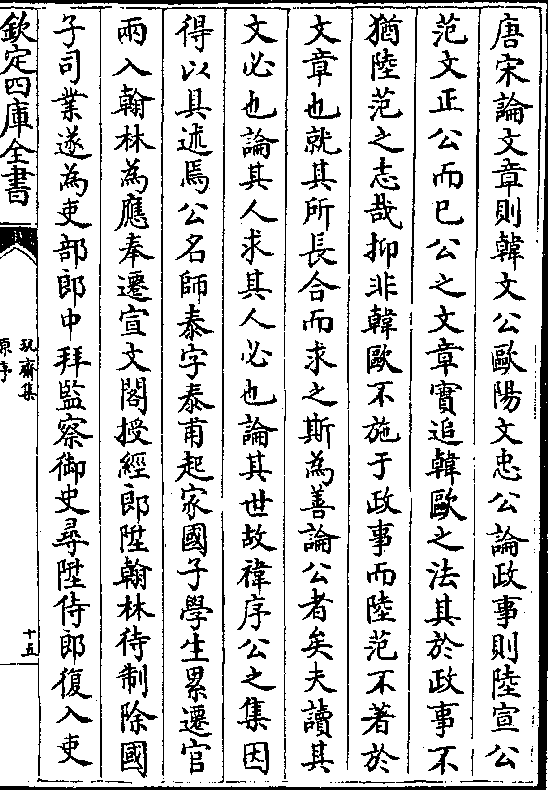 唐宋論文章則韓文公歐陽文忠公論政事則陸宣公
范文正公而已公之文章實追韓歐之法其於政事不
猶陸范之志哉抑非韓歐不施于政事而陸范不著於
文章也就其所長合而求之斯為善論公者矣夫讀其
文必也論其人求其人必也論其世故禕序公之集因
得以具述焉公名師泰字泰甫起家國子學生累遷官
兩入翰林為應奉遷宣文閣授經郎陞翰林待制除國
子司業遂為吏部郎中拜監察御史尋陞侍郎復入吏
欽定四庫全書
玩齋集
原序
十五